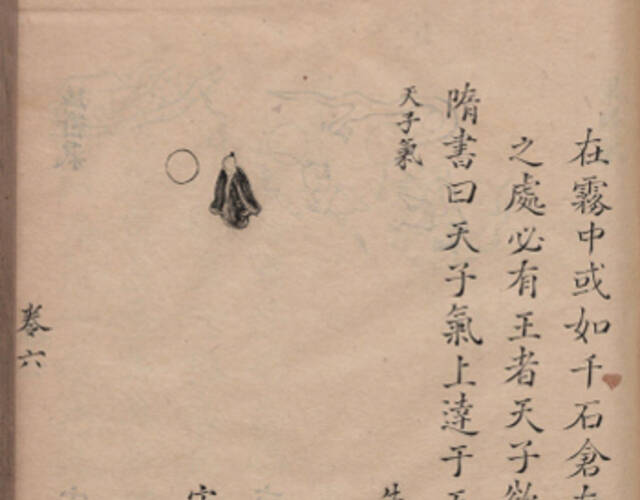 在霧中或如千石倉
之處必有王者天子
隋書曰天子氣上達于
天子氣
卷六